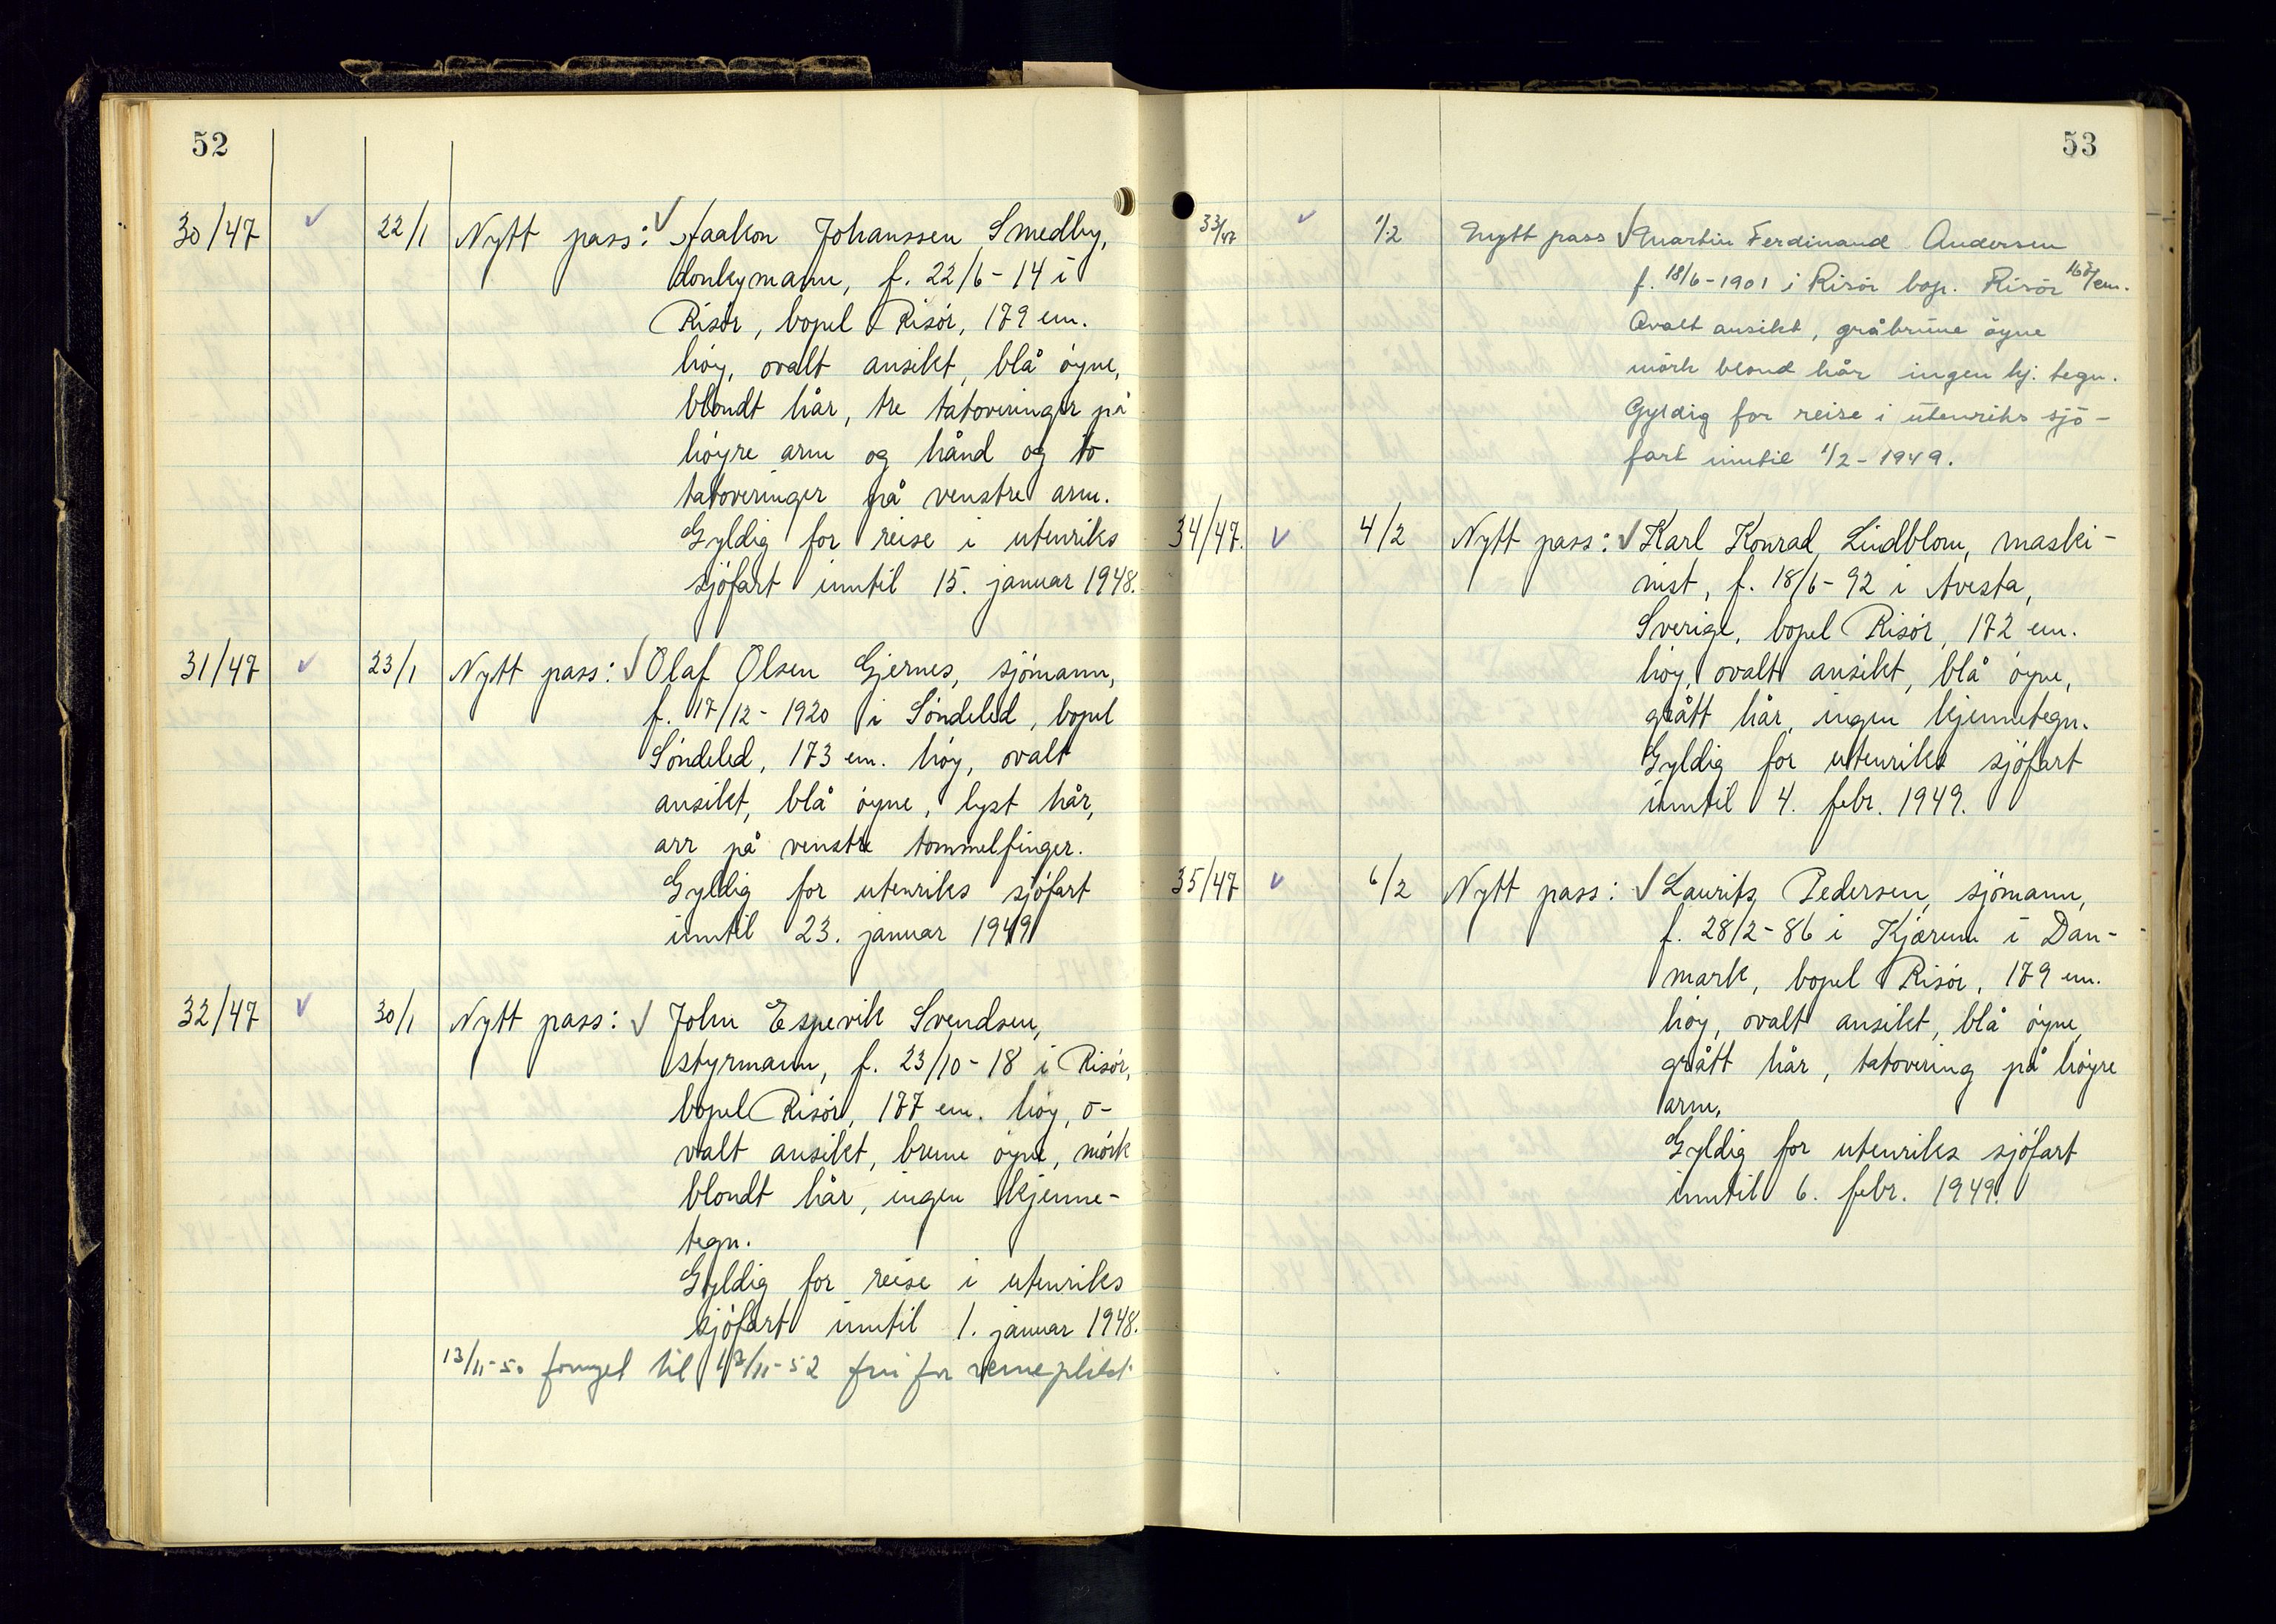 52
30/47 ✓ 22/1 Nytt pass: ✓ Haakon Johanssen Smedby,
donkymann, f. 22/6-14 i
Risör, bopel Risör, 179 cm.
höy, ovalt ansikt, blå öyne,
blondt hår, tre tatoveringer på
höyre arm og hånd og to
tatoveringer på venstre arm.
Gyldig for reise i utenriks
sjöfart inntil 15. januar 1948.
31/47 ✓ 23/1 Nytt pass: ✓ Olaf Olsen Gjernes, sjömann,
f. 17/12-1920 i Söndeled, bopel
Söndeled, 173 cm. höy, ovalt
ansikt, blå öyne, lyst hår,
arr på venstre tommelfinger.
Gyldig for utenriks sjöfart
inntil 23. januar 1949
32/47 ✓ 30/1 Nytt pass: ✓ John Espevik Svendsen,
styrmann, f. 23/10-18 i Risör,
bopel Risör, 177 cm. höy, o-
valt ansikt, brune öyne, mörk
blondt hår, ingen kjenne-
tegn.
Gyldig for reise i utenriks
sjöfart inntil 1. januar 1948.
13/11-50 fornyet til 13/11-52 fri for verneplikt
53
33/47 ✓ 1/2 Nytt pass ✓ Martin Ferdinand Andersen
f. 18/6-1901 i Risör bop. Risör cm.
Ovalt ansikt, gråbrune öyne
mörk blond hår ingen kj. tegn.
Gyldig for reise i utenriks sjö-
fart inntil 1/2-1949.
34/47. ✓ 4/2 Nytt pass: ✓ Karl Konrad Lindblom, maski-
nist, f. 18/6-92 i Avesta,
Sverige, bopel Risör, 172 cm.
höy, ovalt ansikt, blå öyne,
grått hår, ingen kjennetegn.
Gyldig for utenriks sjöfart
inntil 4. febr. 1949.
35/47 ✓ 6/2 Nytt pass: ✓ Laurits Pedersen, sjömann,
f. 28/2-86 i Kjærum i Dan-
mark, bopel Risör, 179 cm.
höy, ovalt ansikt, blå öyne,
grått hår, tatovering på höyre
arm,
Gyldig for utenriks sjöfart
inntil 6. febr. 1949.